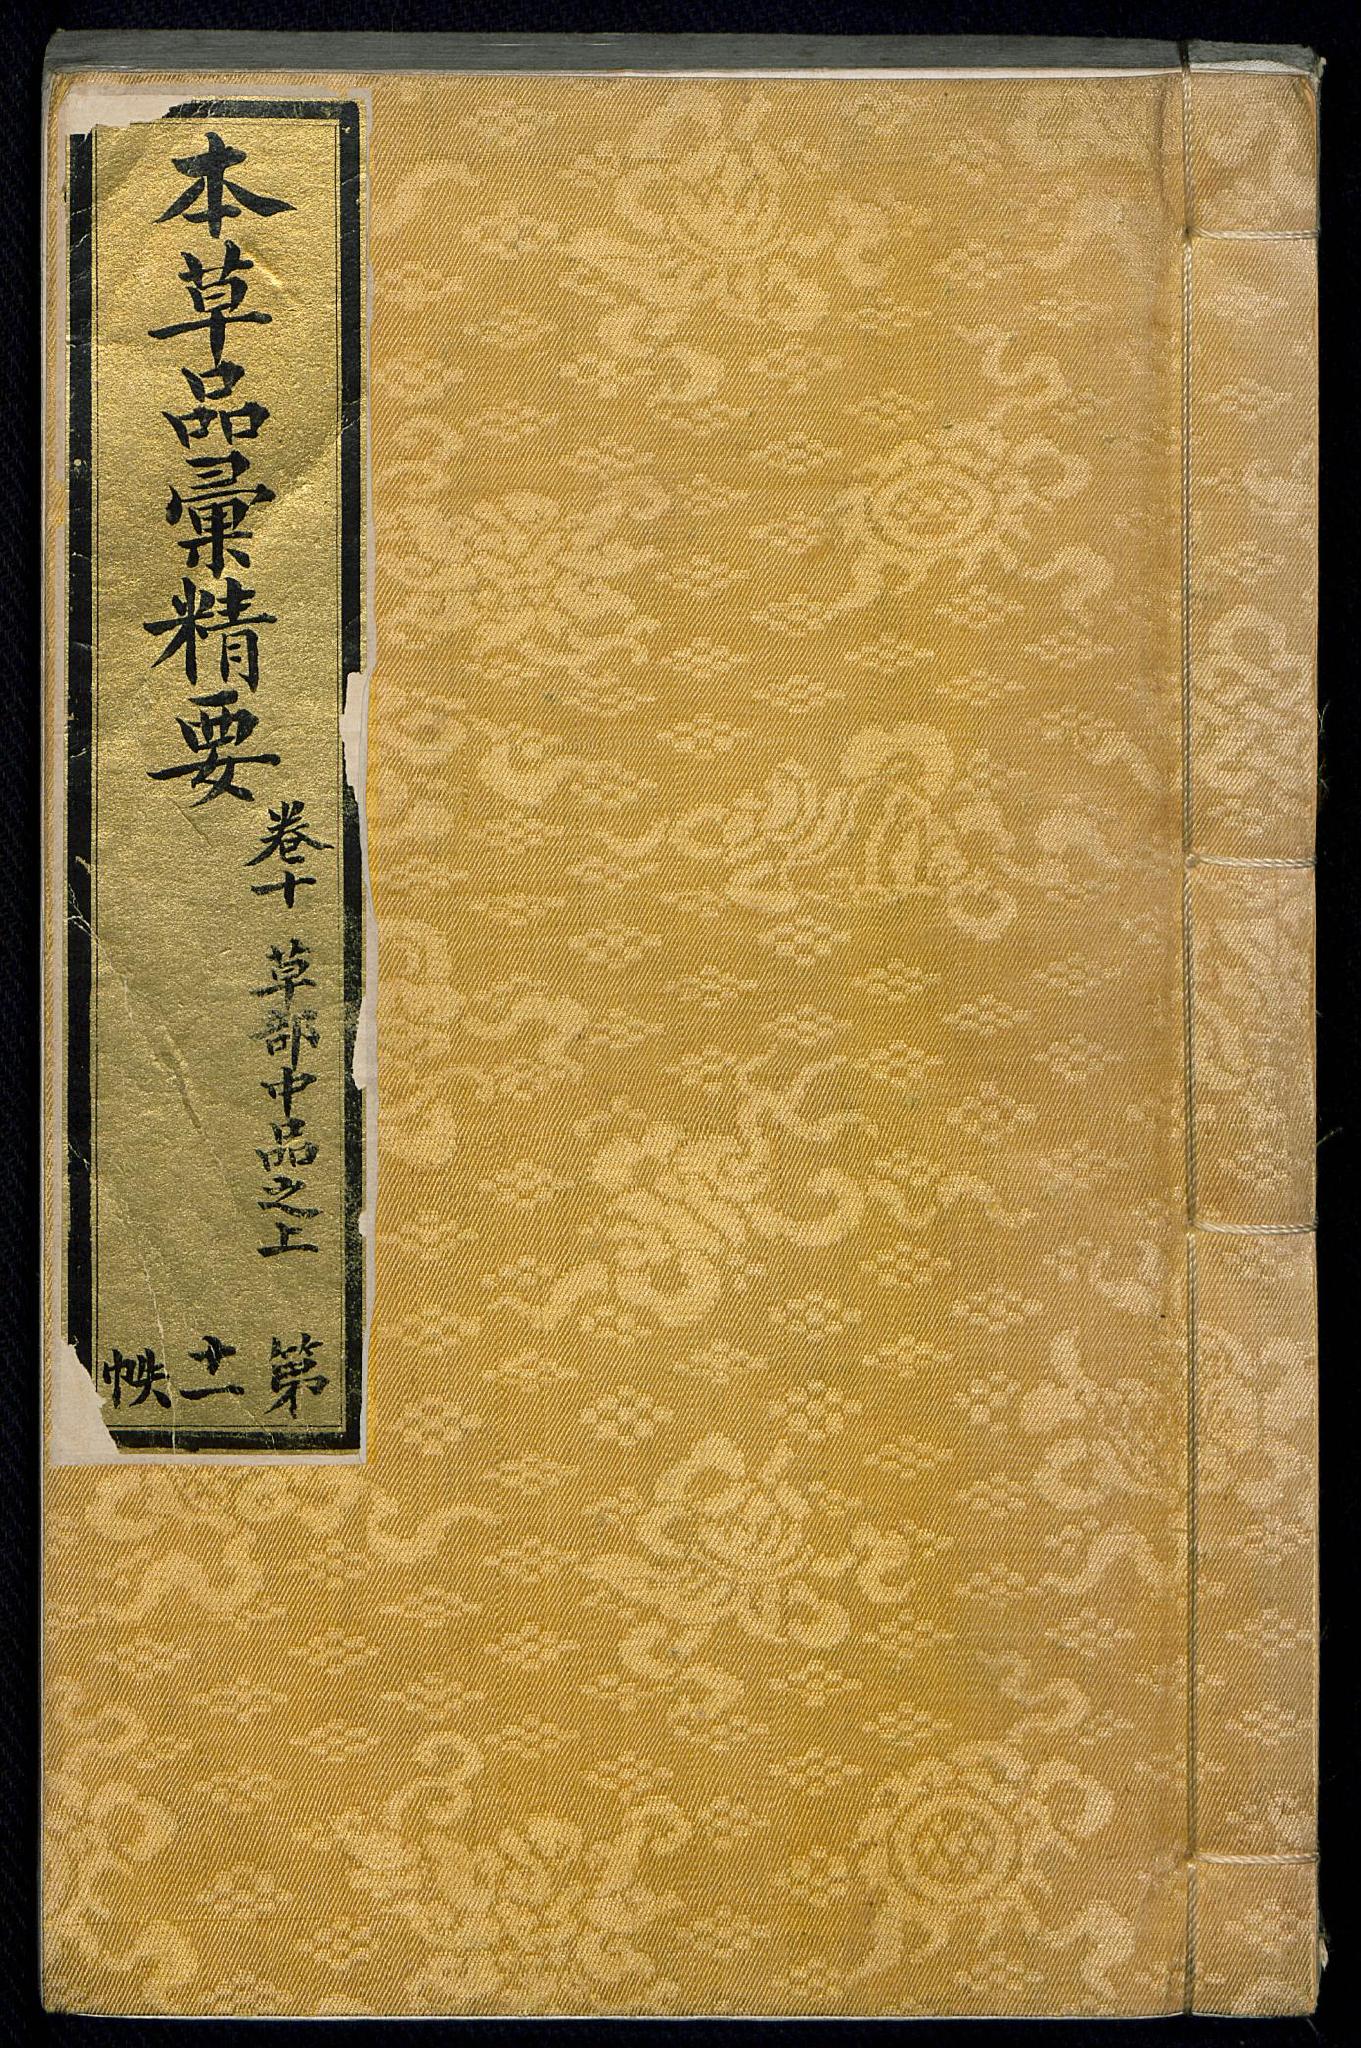 本草品彙精要
卷十 草部中品之上
第廿一帙